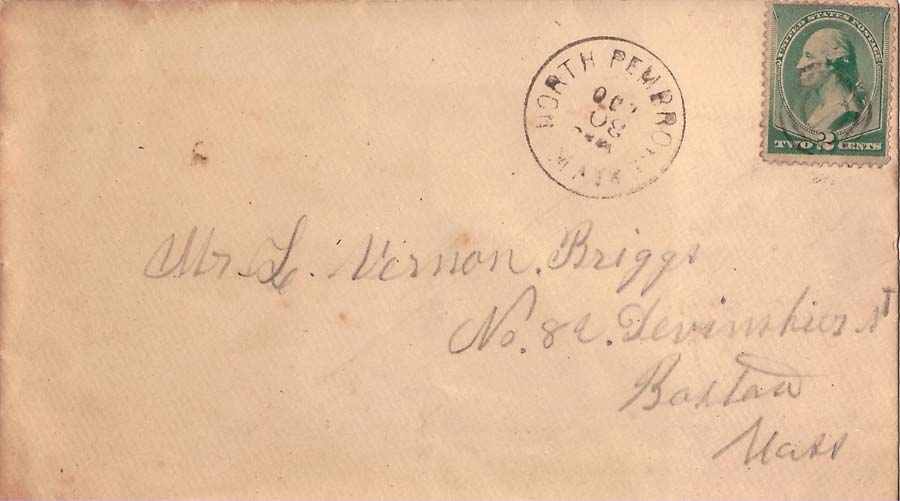 NORTH PEMBRO
OC
MASS
UNITED STATES POSTAGE
TWO 2 CENTS
Mr. L. Vernon. Briggs
No. 82. Devinshier st
Boston
Mass